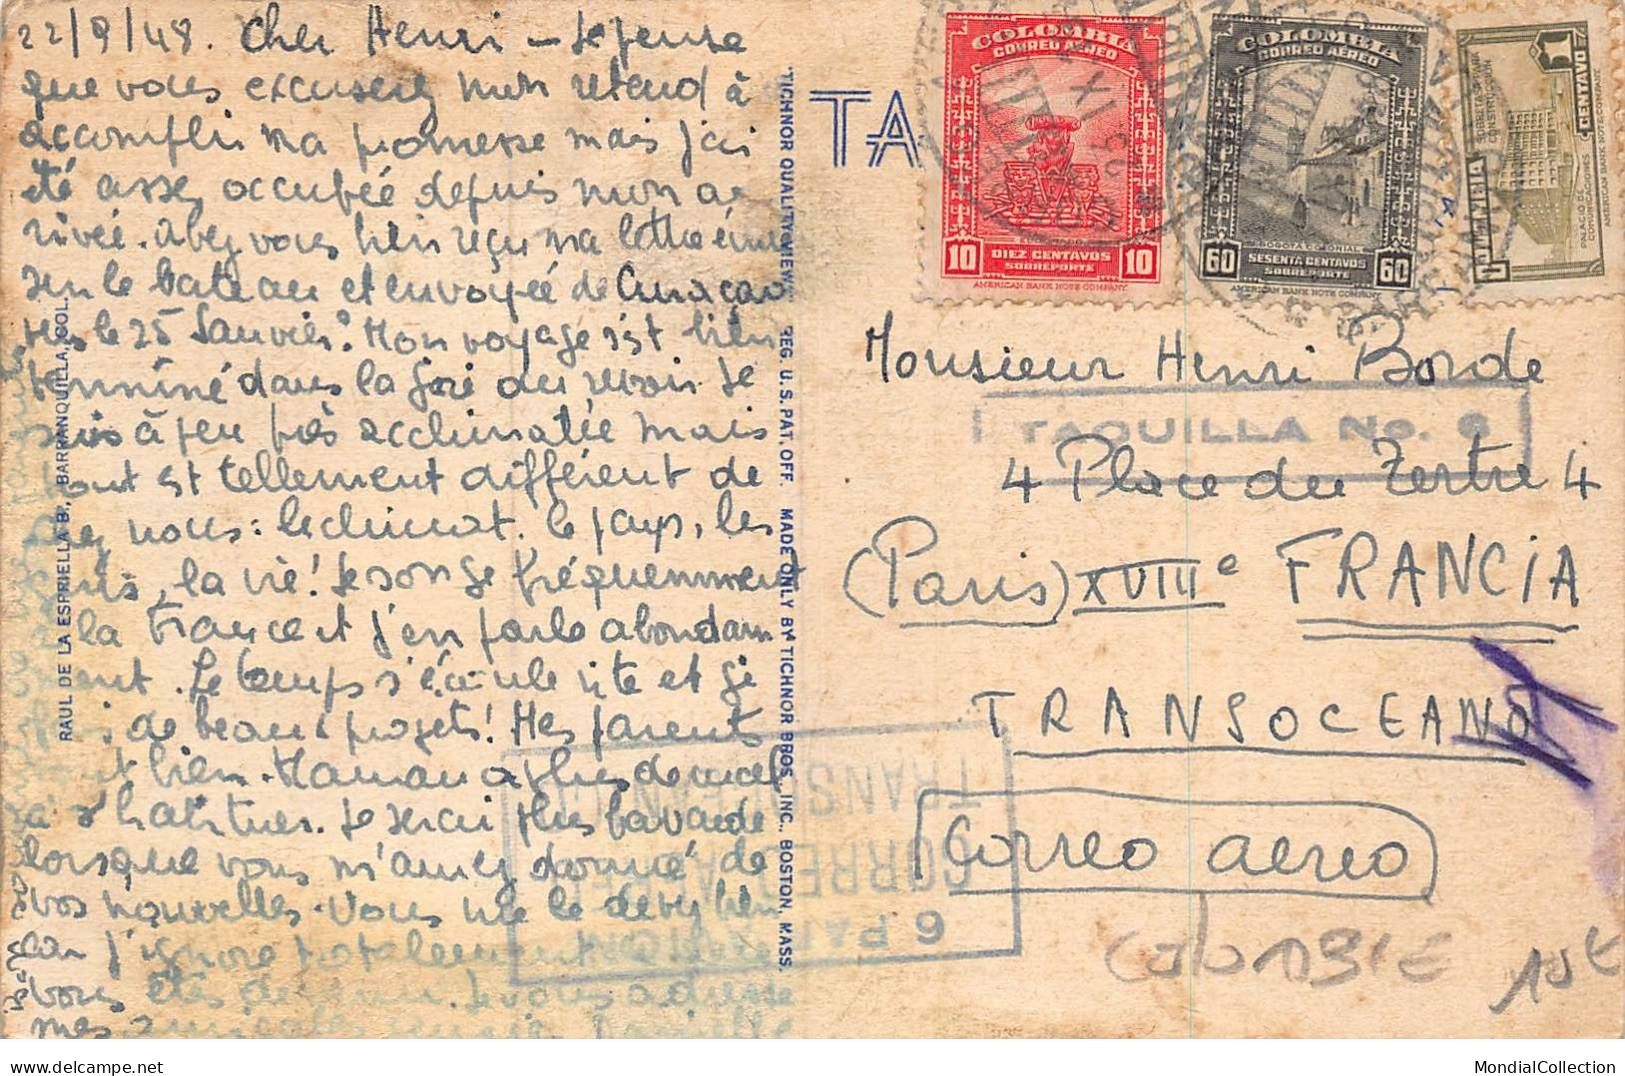 22/9/48. Cher Henri – Je pense
que vous excuserez mon retard à
accomplir ma promesse mais j'ai
été assez occupée depuis mon ar
rivée. Avez vous bien reçu ma lettre écrite
sur le bateau et envoyée de Curaçao
le 25 Janvier? Mon voyage s'est bien
terminé dans la joie du revoir. Je
suis à peu près acclimatée mais
tout est tellement différent de
chez nous: le climat, le pays, les
la vie! Je songe fréquemment
la France et j'en parle abondam
ment. Le temps s'écoule vite et j'ai
de beaux projets! Mes parents
vont bien. Maman a plus de mal
à s'habituer. Je serai plus bavarde
lorsque vous m'aurez donné de
vos nouvelles. Vous me le devez bien
car j'ignore totalement
vous êtes devenu. Je vous adresse
mes
RAUL DE LA ESPRIELLA B., BARRANQUILLA, COL.
"TICHNOR QUALITY VIEWS," REG. U. S. PAT. OFF. MADE ONLY BY TICHNOR BROS., INC., BOSTON, MASS.
TA
COLOMBIA
CORREO AEREO
10 DIEZ CENTAVOS 10
SOBREPORTE
AMERICAN BANK NOTE COMPANY.
COLOMBIA
CORREO AÉREO
BOGOTA COLONIAL
60 SESENTA CENTAVOS 60
SOBREPORTE
AMERICAN BANK NOTE COMPANY.
COLOMBIA
1 CENTAVO
SOBRETASA PARA CONSTRUCCION
PALACIO DE COMUNICACIONES
AMERICAN BANK NOTE COMPANY
Monsieur Henri Borde
TAQUILLA No. 6
4 Place du Tertre 4
(Paris) XVIIIe FRANCIA
TRANSOCEANO
Correo aereo
6
CORREO AEREO
COLOMBIE
10€
MondialCollection